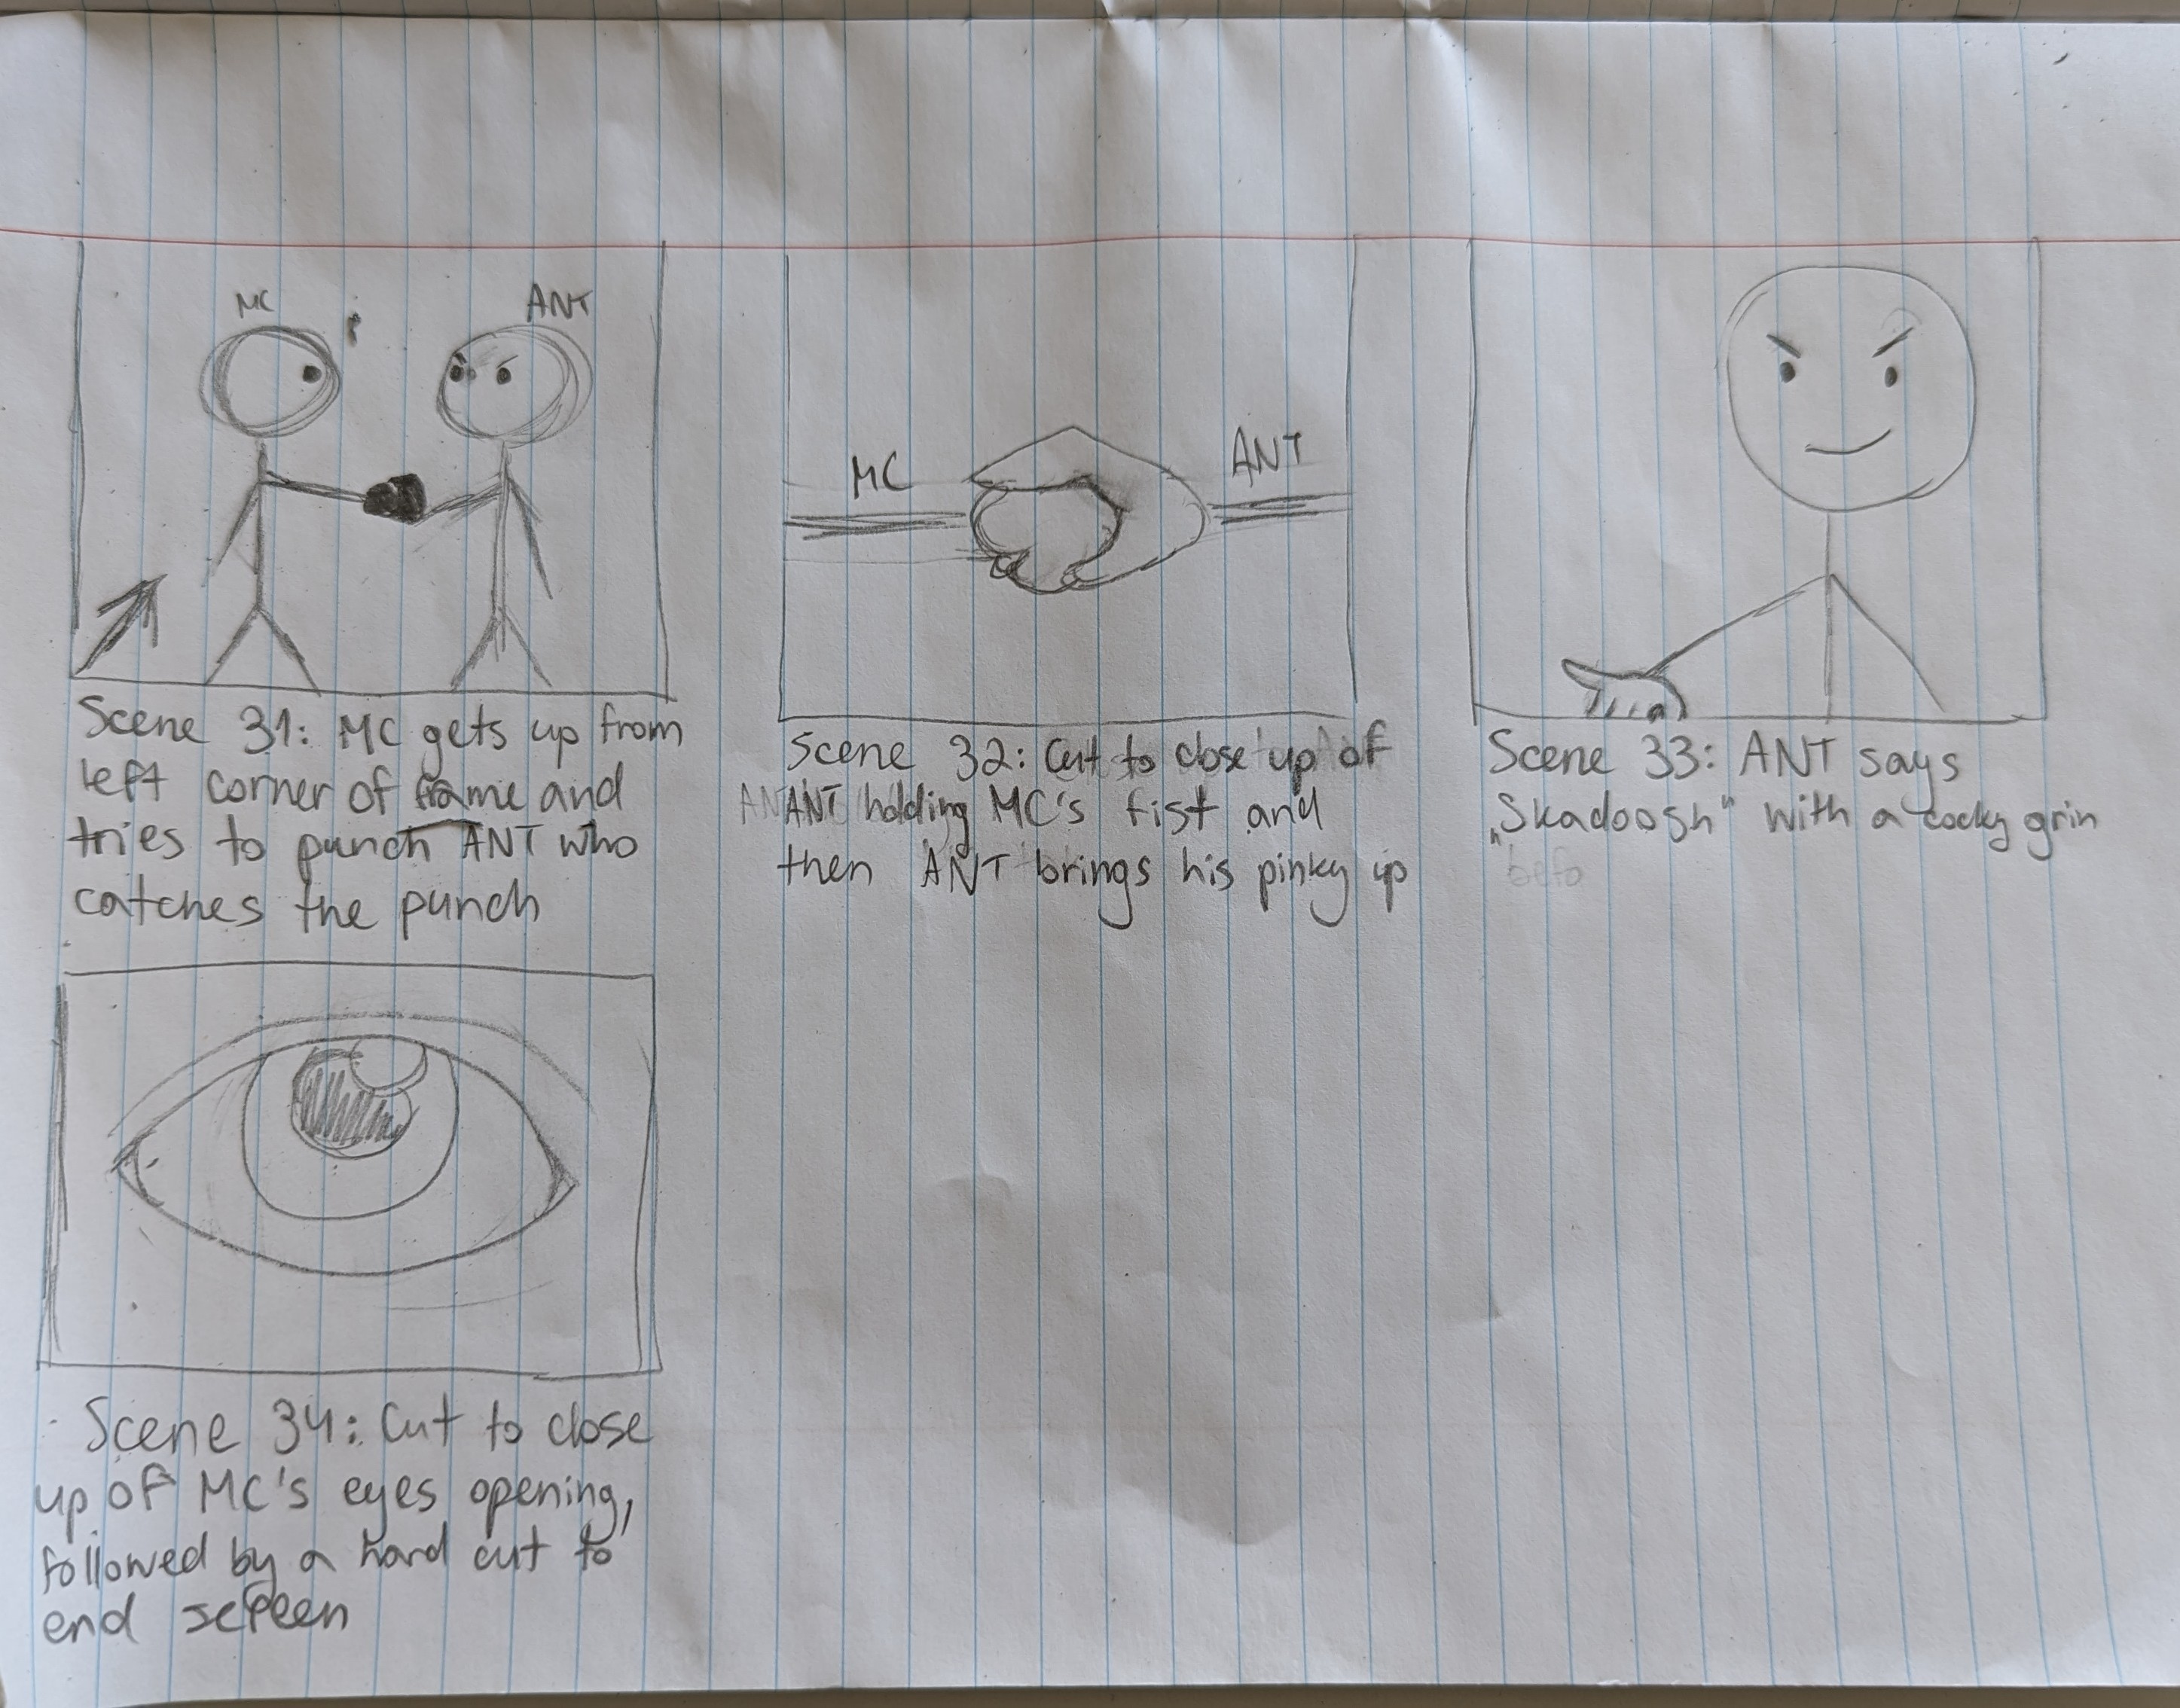 MC
ANT
Scene 31: MC gets up from
left corner of frame and
tries to punch ANT who
catches the punch
MC
ANT
Scene 32: Cut to close up of
ANT holding MC's fist and
then ANT brings his pinky up
Scene 33: ANT says
„Skadoosh" with a cocky grin
befo
Scene 34: Cut to close
up of MC's eyes opening,
followed by a hard cut to
end screen